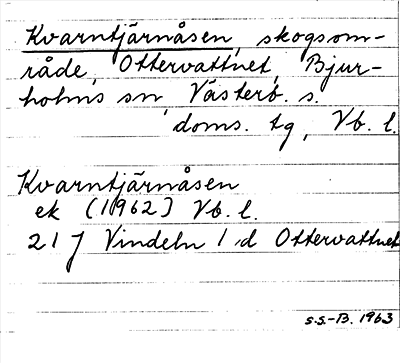 Kvarntjärnåsen, skogsom-
råde, Ottervattnet, Bjur-
holms sn, Västerb. s.
doms. tg, Vb. l.
Kvarntjärnåsen
ek (1962) Vb. l.
21 J Vindeln 1 d Ottervattnet
s.s.-B. 1963